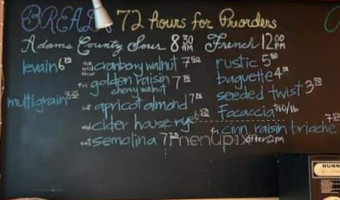 BREAD 72 hours for Preorders
Adams County Sour 8 30 AM French 12 00 PM
levain 6 cranberry walnut 7 rustic 5
golden raisin 7 baguette 4
cherry walnut
multigrain seeded twist 3
apricot almond 7
focaccia
cider house rye 6
cinn raisin brioche 7
semolina 7 after 12pm
menupix
BUNN